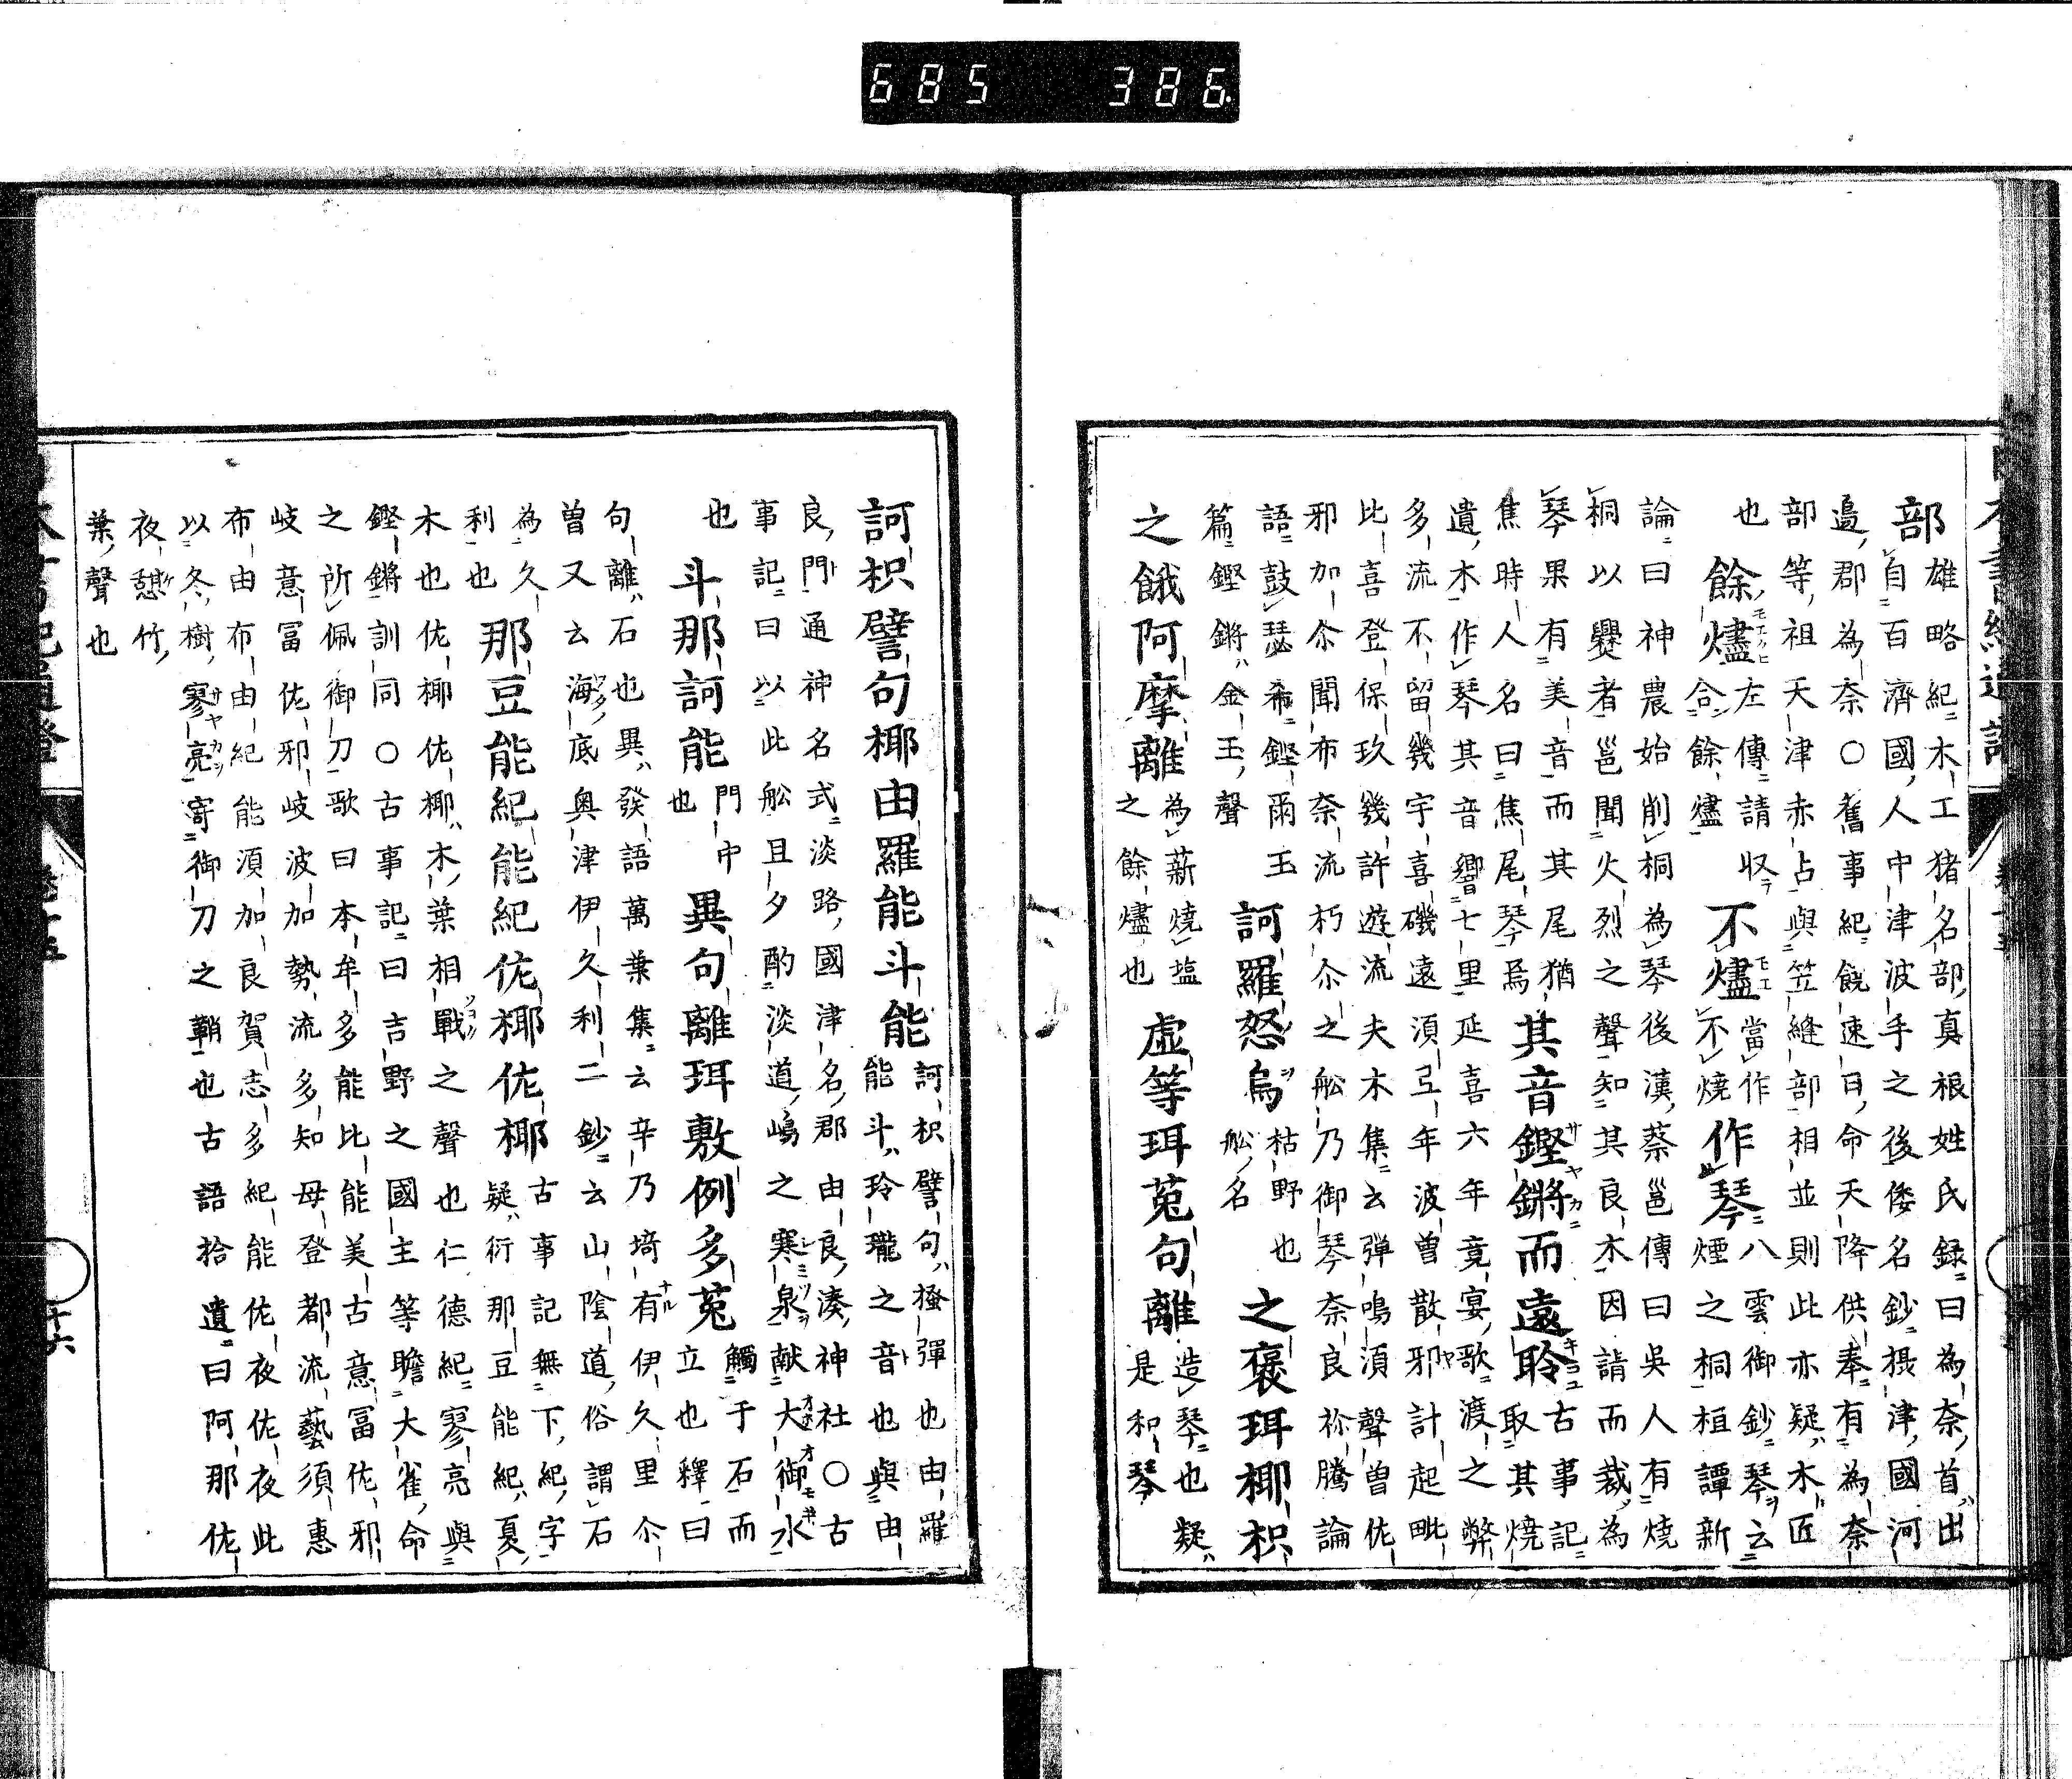 685 386
部 雄略紀木工猪名部真根姓氏録曰為奈首出
自百濟國人中津波手之後倭名鈔摂津國河
邉郡為奈〇舊事紀饒速日命天降供奉有為奈
部等祖天津赤占與笠縫部相並則此亦疑木匠
也 餘燼 左傳請収合餘燼 不燼 當作不燒 作琴 八雲御鈔琴云煙之桐桓譚新
論曰神農始削桐為琴後漢蔡邕傳曰吳人有燒
桐以爨者邕聞火烈之聲知其良木因請而裁為
琴果有美音而其尾猶焦時人名曰焦尾琴焉 其音鏗鏘而遠聆 古事記取其燒
遺木作琴其音響七里延喜六年竟宴歌渡之弊
多流不留幾宇喜磯遠湏弖年波曽散邪計起毗
比喜登保玖幾許遊流夫木集云弾鳴湏聲曽佐
邪加尒聞布奈流朽尒之舩乃御琴奈良祢騰論
語鼓瑟希鏗爾玉篇鏗鏘金玉聲 訶羅怒烏 枯野也舩名 之褒珥椰枳
之餓阿摩離 為薪燒塩之餘燼也 虚等珥菟句離 造琴也疑是和琴
訶枳譬句椰由羅能斗能 訶枳譬句搔彈也由羅能斗玲瓏之音也與由
良門通神名式淡路國津名郡由良湊神社〇古
事記曰以此舩且夕酌淡道嶋之寒泉献大御水
也 斗那訶能 門中也 異句離珥敷例多菟 觸于石而立也釋曰
句離石也異發語萬葉集云辛乃埼有伊久里尒
曽又云海底奥津伊久利二鈔云山陰道俗謂石
為久利也 那豆能紀能紀佐椰佐椰 古事記無下紀字疑衍那豆能紀夏
木也佐椰佐椰木葉相戰之聲也仁德紀寥亮與
鏗鏘訓同〇古事記曰吉野之國主等瞻大雀命
之所佩御刀歌曰本牟多能比能美古意冨佐邪
岐意冨佐邪岐波加勢流多知母登都流藝須惠
布由布由紀能湏加良賀志多紀能佐夜佐夜此
以冬樹寥亮寄御刀之鞘也古語拾遺曰阿那佐
夜憩竹葉聲也
十六